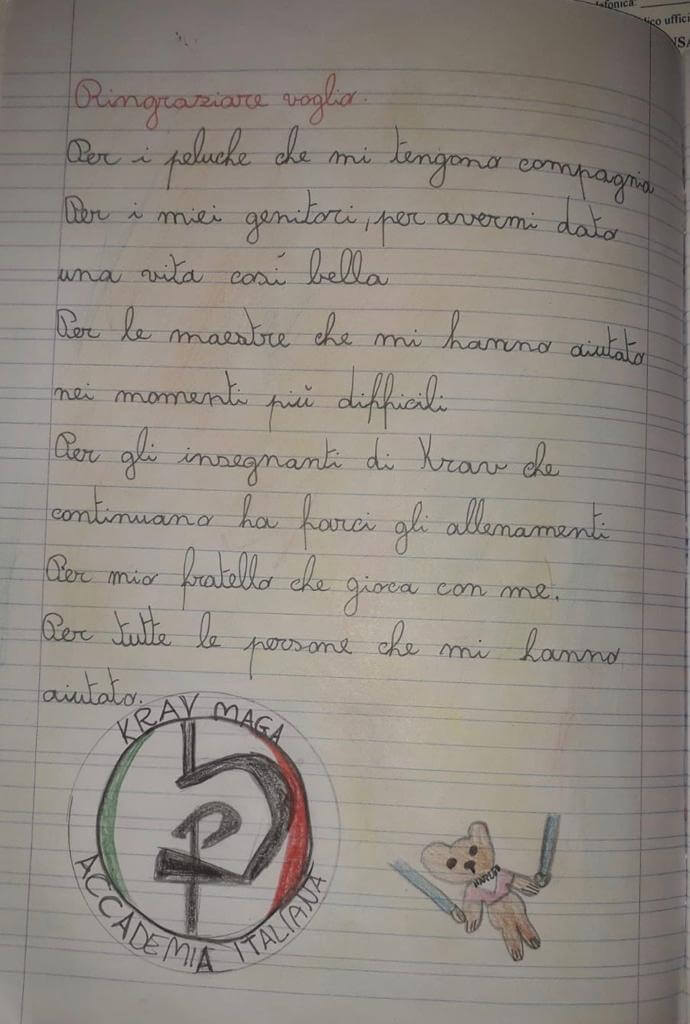 efonica:
ico uffici
NSA
Ringraziare voglio.
Per i peluche che mi tengono compagnia
Per i miei genitori, per avermi dato
una vita così bella
Per le maestre che mi hanno aiutato
nei momenti più difficili
Per gli insegnanti di Krav che
continuano ha farci gli allenamenti
Per mio fratello che gioca con me.
Per tutte le persone che mi hanno
aiutato.
KRAV MAGA
ACCADEMIA ITALIANA